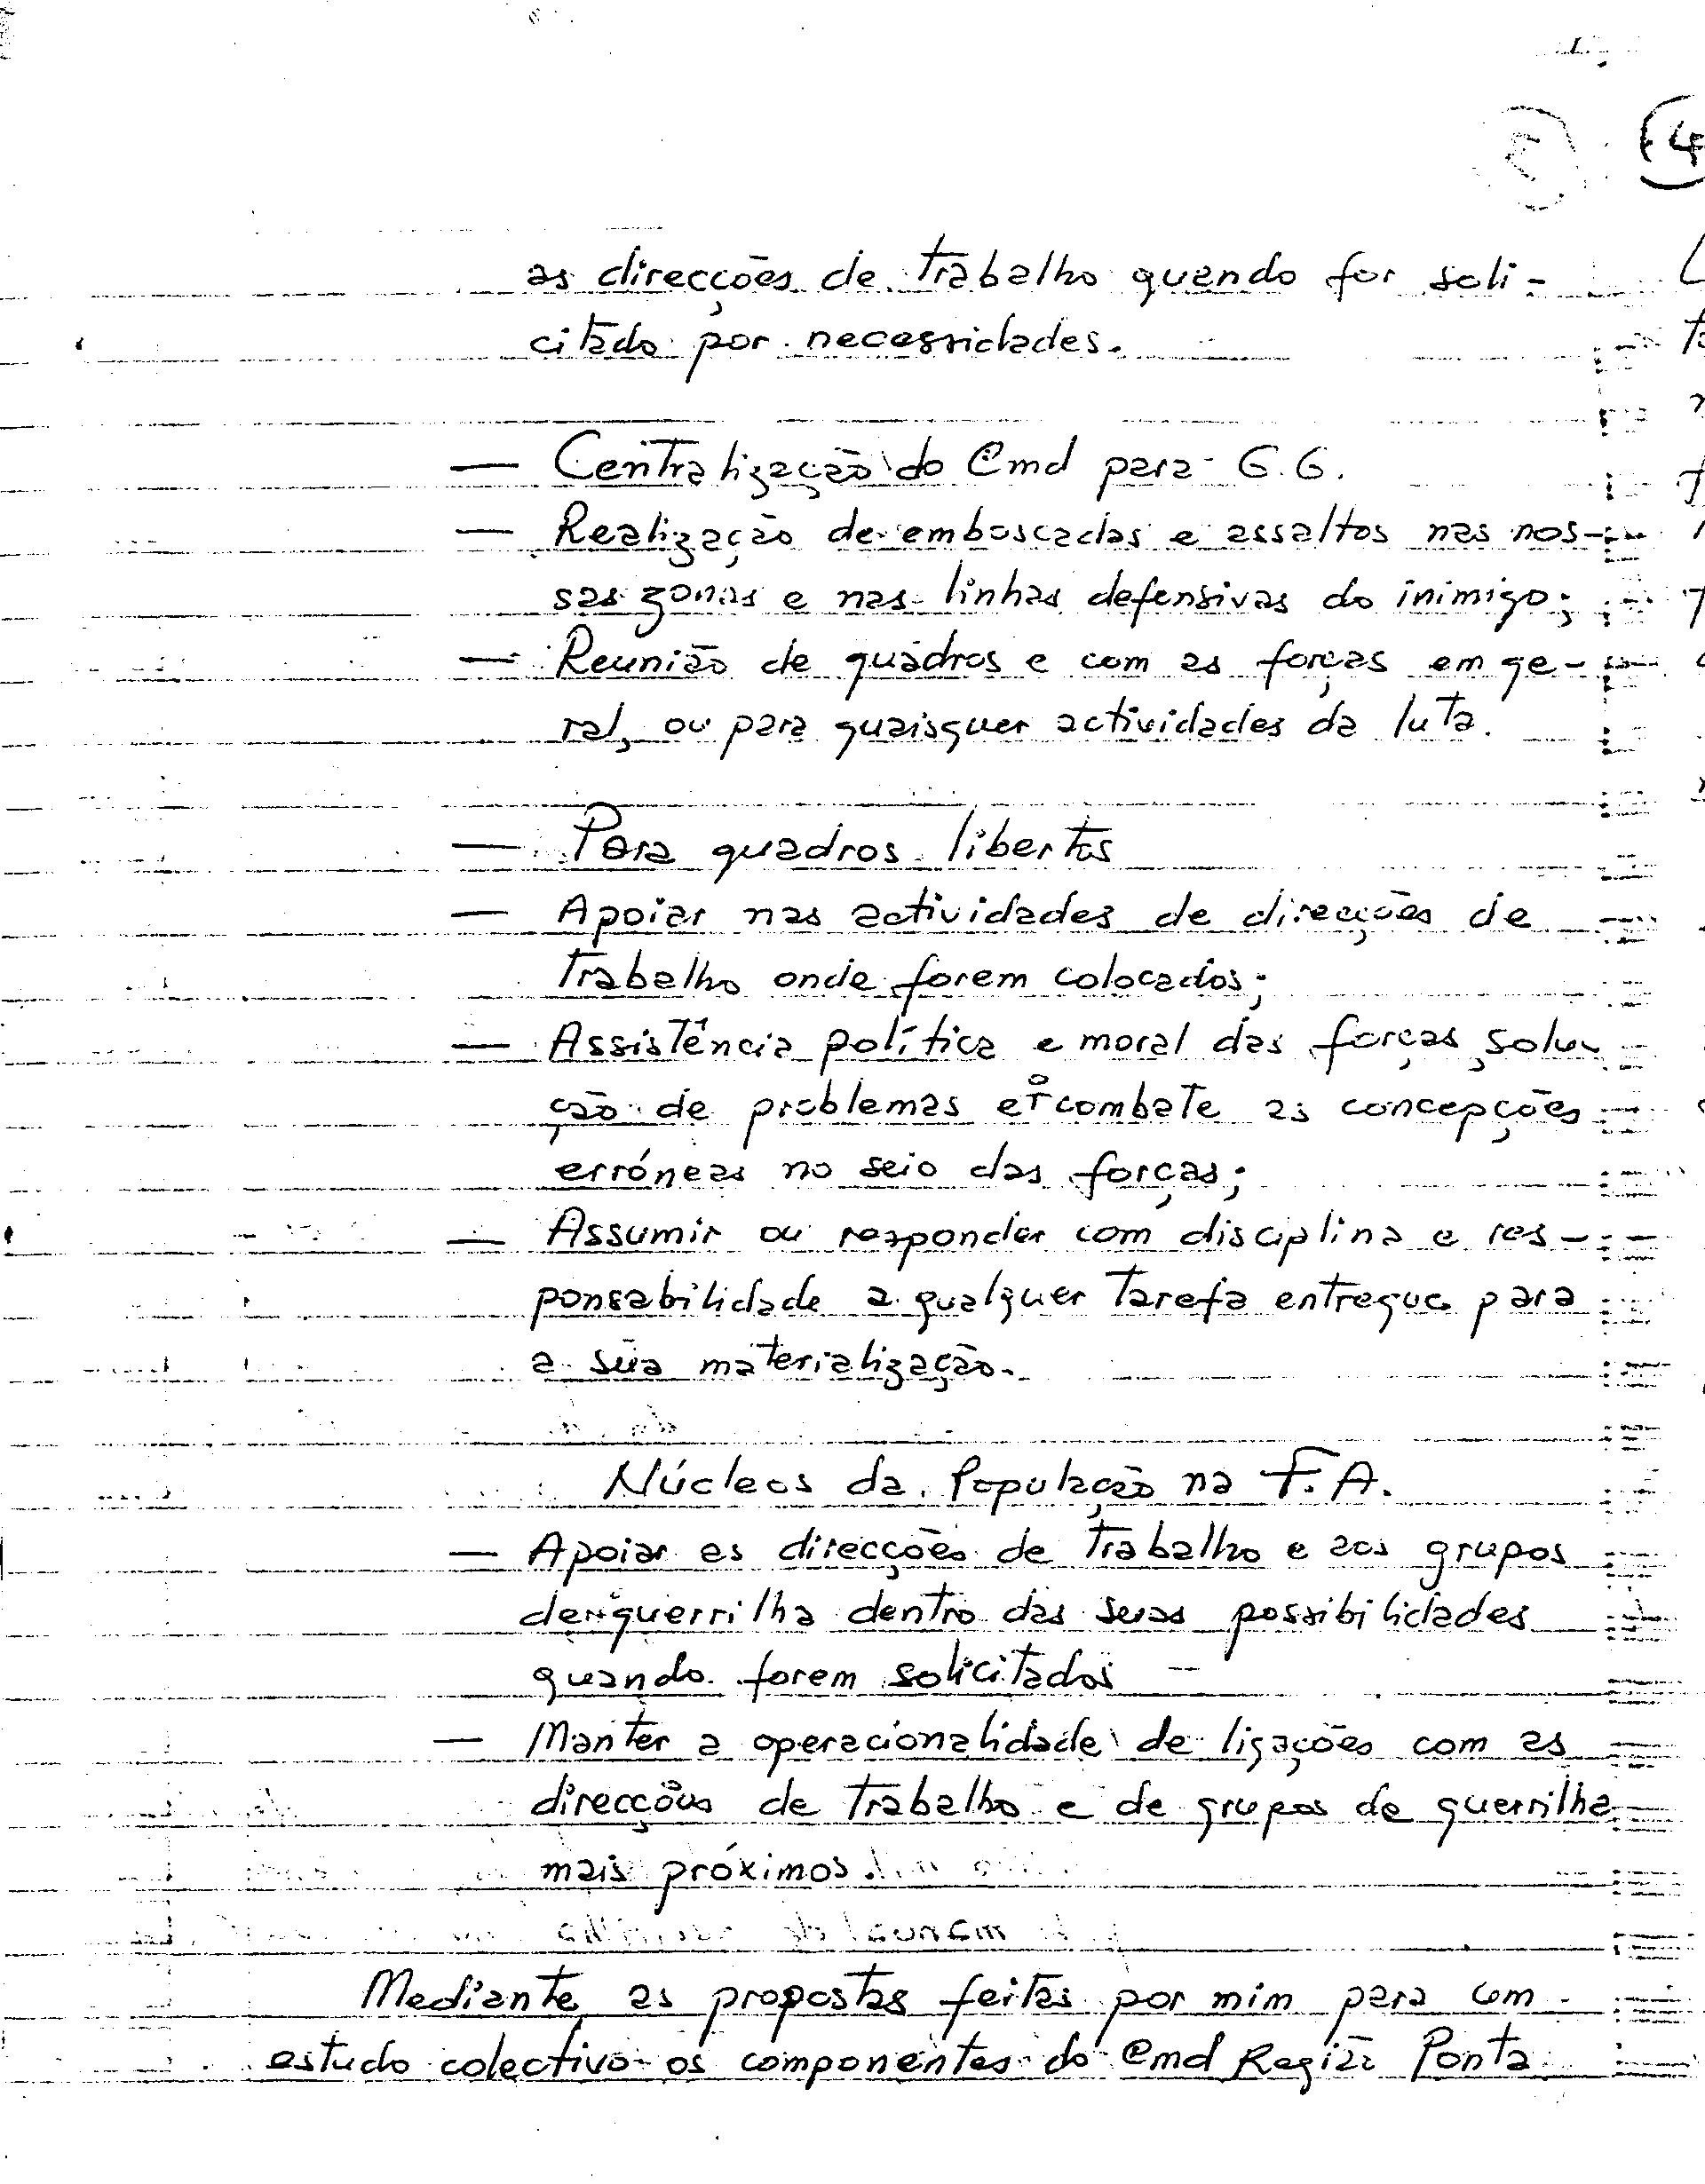 (4
as direcções de trabalho quando for soli-
citado por necessidades.
— Centralização do Cmd para G.G.
— Realização de emboscadas e assaltos nas nos-
sas zonas e nas linhas defensivas do inimigo;
— Reunião de quadros e com as forças em ge-
ral, ou para quaisquer actividades da luta.
— Para quadros libertos
— Apoiar nas actividades de direcções de
trabalho onde forem colocados;
— Assistência política e moral das forças, solu-
ção de problemas e o combate as concepções
erróneas no seio das forças;
— Assumir ou responder com disciplina e res-
ponsabilidade a qualquer tarefa entregue para
a sua materialização.
Núcleos da População na F.A.
— Apoiar as direcções de trabalho e aos grupos
de guerrilha dentro das suas possibilidades
quando forem solicitados
— Manter a operacionalidade de ligações com as
direcções de trabalho e de grupos de guerrilha
mais próximos.
Mediante as propostas feitas por mim para um
estudo colectivo os componentes do Cmd Região Ponta